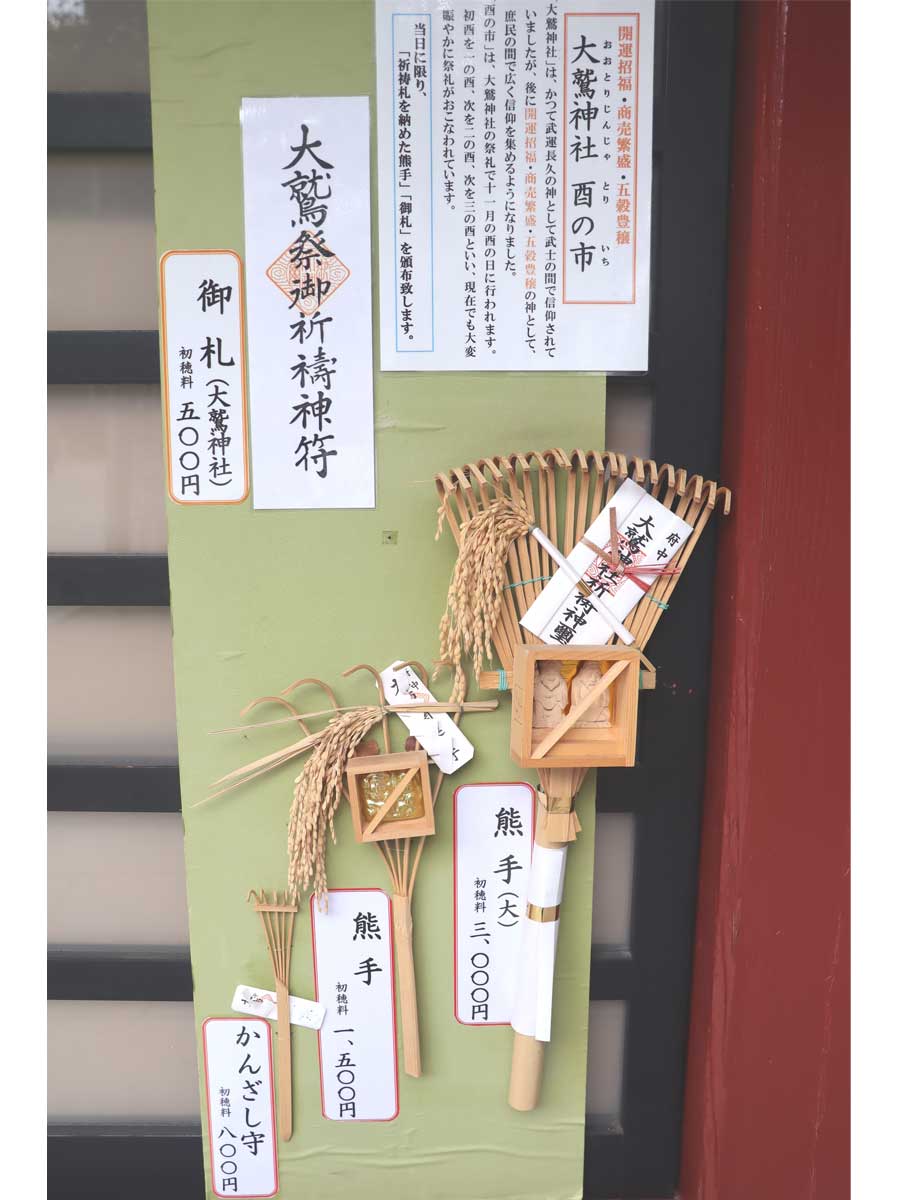 開運招福・商売繁盛・五穀豊穣
おおとりじんじゃ とり いち
大鷲神社 酉の市
大鷲神社」は、かつて武運長久の神として武士の間で信仰されて
いましたが、後に開運招福・商売繁盛・五穀豊穣の神として、
庶民の間で広く信仰を集めるようになりました。
酉の市」は、大鷲神社の祭礼で十一月の酉の日に行われます。
初酉を一の酉、次を二の酉、次を三の酉といい、現在でも大変
賑やかに祭礼がおこなわれています。
当日に限り、
「祈祷札を納めた熊手」「御札」を頒布致します。
大鷲祭御祈禱神符
御札(大鷲神社)
初穂料 五〇〇円
府中
大鷲神社祈祷神璽
熊手(大)
初穂料 三、〇〇〇円
熊手
初穂料 一、五〇〇円
かんざし守
初穂料 八〇〇円